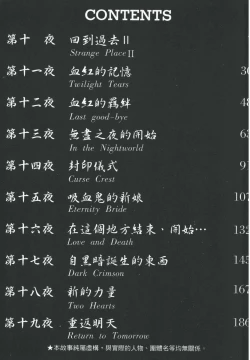 CONTENTS
第十 夜 回到過去II
Strange Place II
第十一夜 血紅的記憶
Twilight Tears
第十二夜 血紅的羈絆
Last good-bye
第十三夜 無盡之夜的開始
In the Nightworld
第十四夜 封印儀式
Curse Crest
第十五夜 吸血鬼的新娘 107
Eternity Bride
第十六夜 在這個地方結束，開始… 132
Love and Death
第十七夜 自黑暗誕生的東西 145
Dark Crimson
第十八夜 新的力量 167
Two Hearts
第十九夜 重返明天 186
Return to Tomorrow
★本故事純屬虛構，與實際的人物、團體名等均無關係。